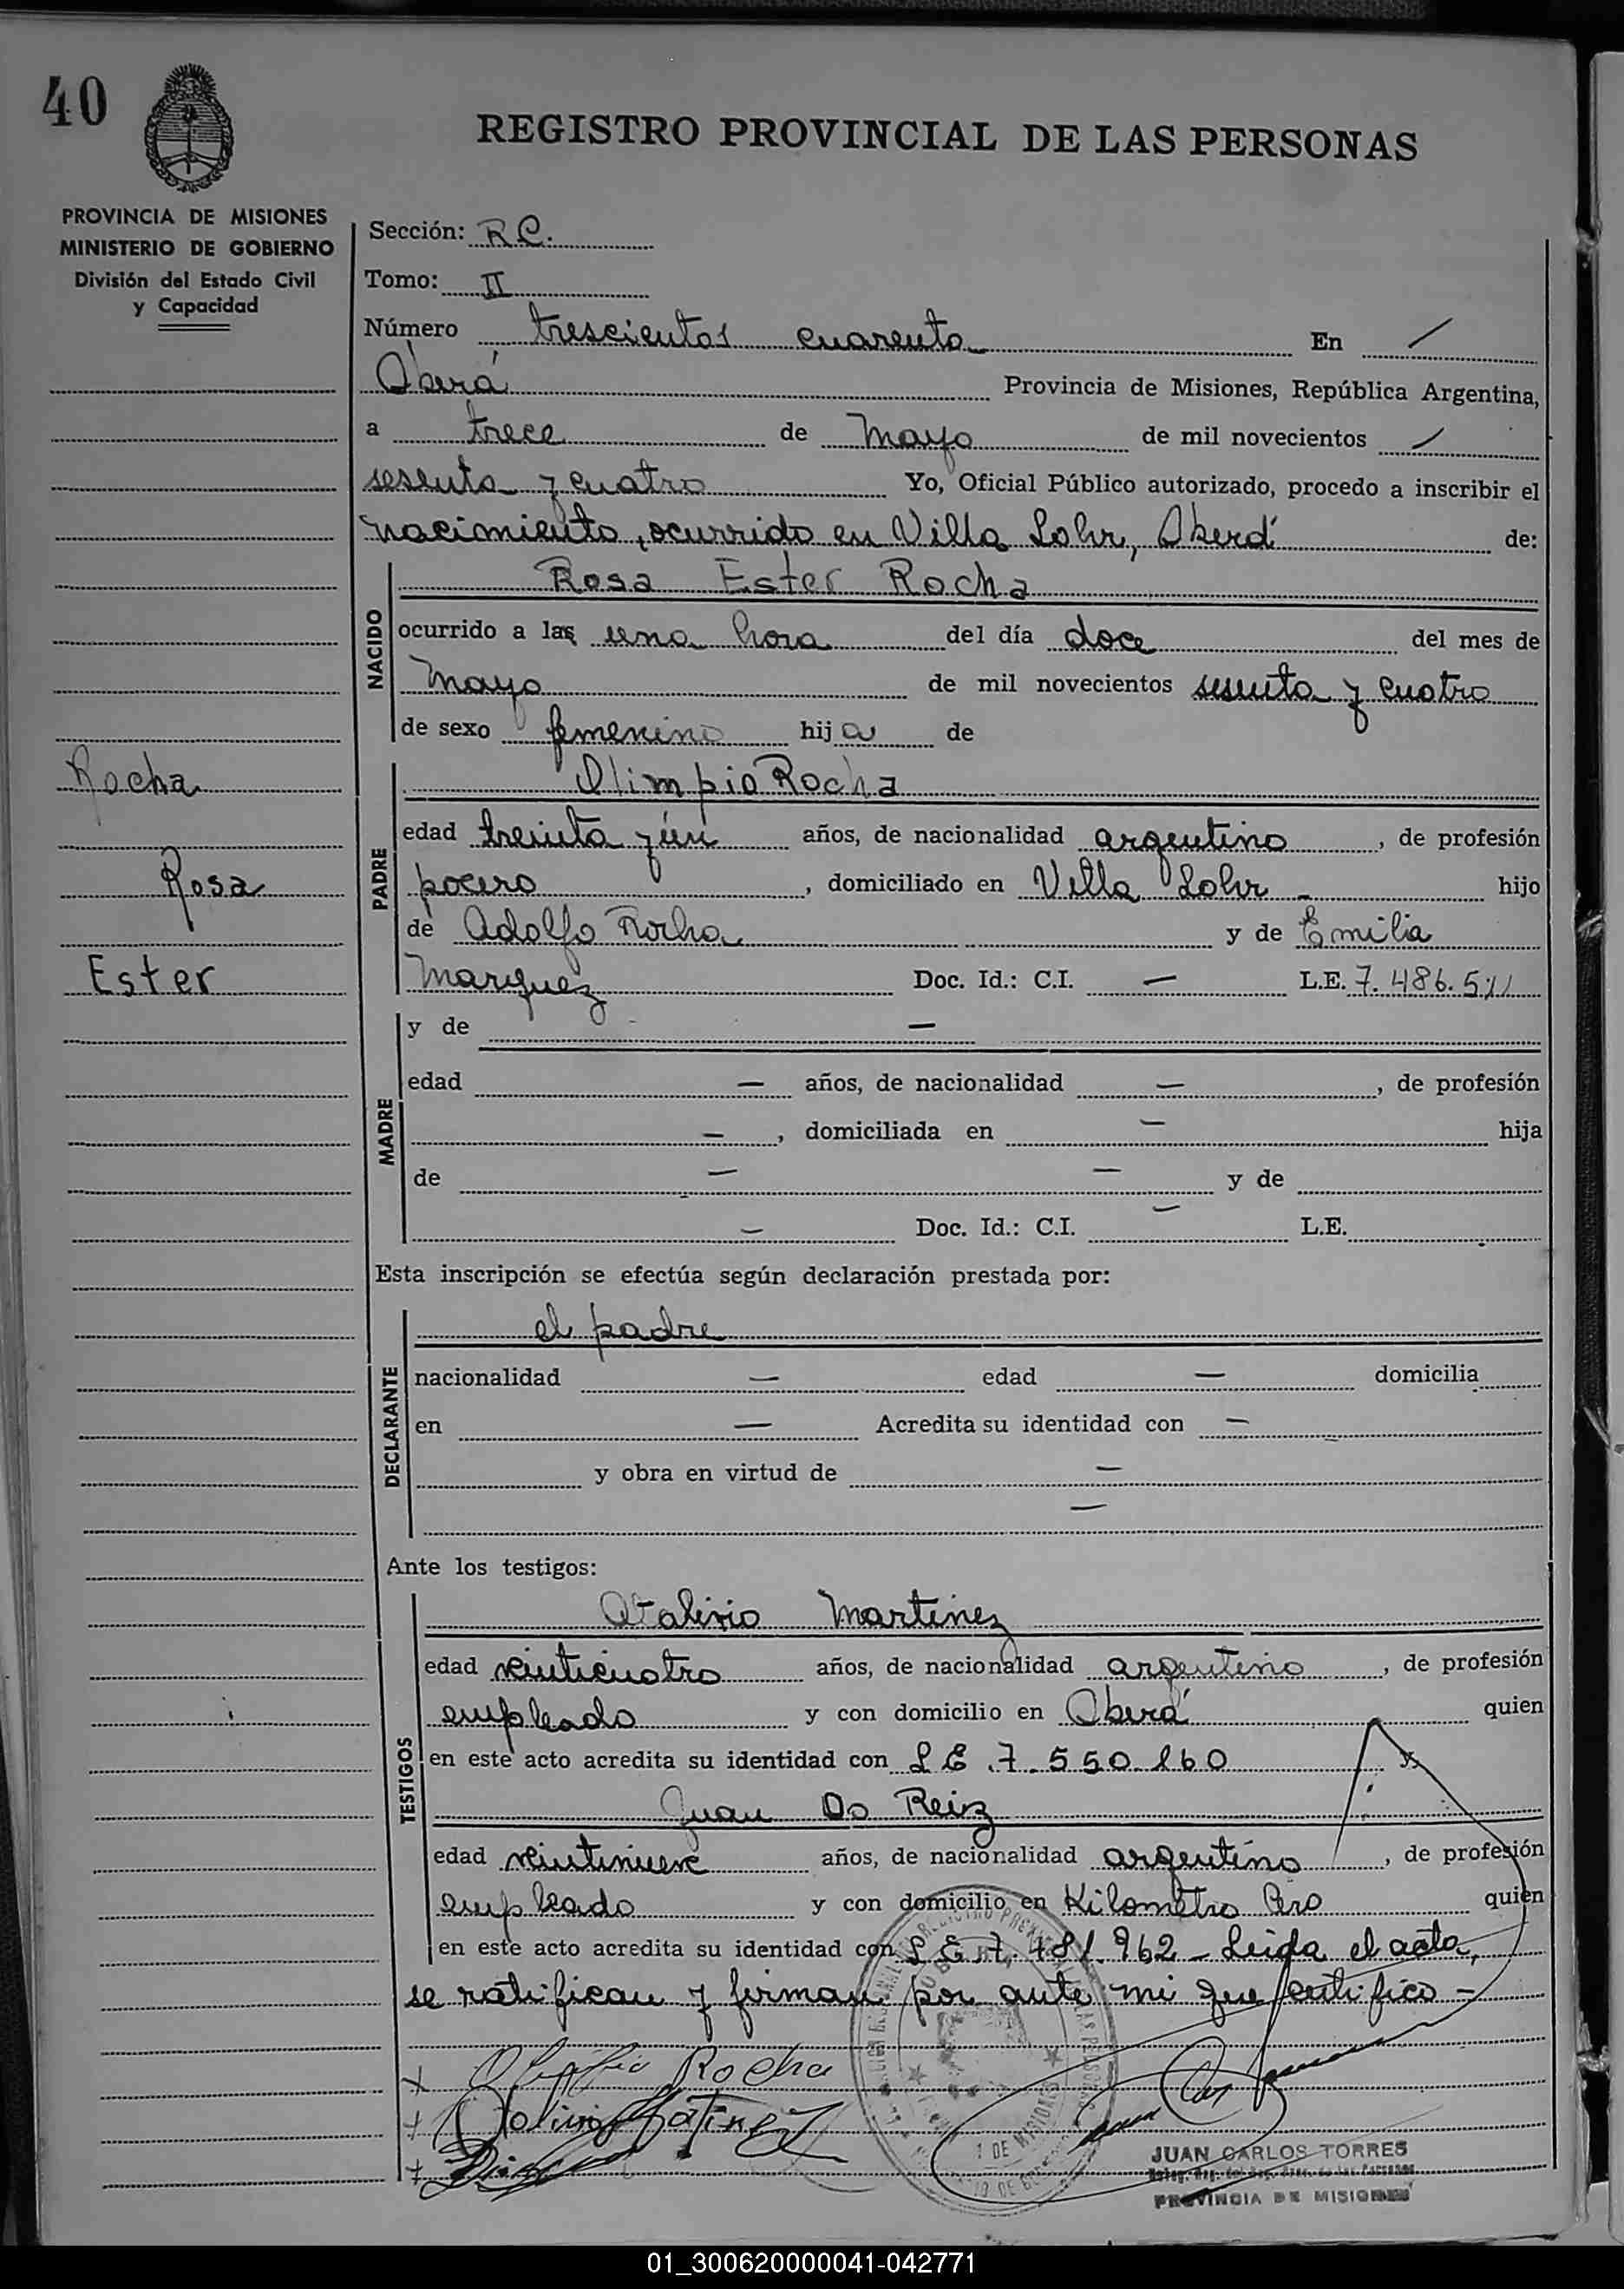 40
REGISTRO PROVINCIAL DE LAS PERSONAS
PROVINCIA DE MISIONES
MINISTERIO DE GOBIERNO
División del Estado Civil
y Capacidad
Sección: R.C.
Tomo: II
Número trescientos cuarenta En /
Oberá Provincia de Misiones, República Argentina,
a trece de Mayo de mil novecientos /
sesenta y cuatro Yo, Oficial Público autorizado, procedo a inscribir el
nacimiento, ocurrido en Villa Lohr, Oberá de:
NACIDO
Rosa Ester Rocha
ocurrido a las una hora del día doce del mes de
Mayo de mil novecientos sesenta y cuatro
de sexo femenino hija de
Rocha
Rosa
Ester
PADRE
Olimpio Rocha
edad treinta y un años, de nacionalidad argentino, de profesión
pocero, domiciliado en Villa Lohr - hijo
de Adolfo Rocha y de Emilia
Marquez Doc. Id.: C.I. — L.E. 7.486.511
MADRE
y de —
edad — años, de nacionalidad —, de profesión
—, domiciliada en — hija
de — — y de
— Doc. Id.: C.I. — L.E.
Esta inscripción se efectúa según declaración prestada por:
DECLARANTE
el padre
nacionalidad — edad — domicilia
en — Acredita su identidad con —
y obra en virtud de —
—
Ante los testigos:
TESTIGOS
Atalivio Martinez
edad veinticuatro años, de nacionalidad argentino, de profesión
empleado y con domicilio en Oberá quien
en este acto acredita su identidad con L E . 7.550.160
Juan Do Reiz
edad veintinueve años, de nacionalidad argentino, de profesión
empleado y con domicilio en Kilometro Cero quien
en este acto acredita su identidad con L E 7.481.962 - Leida el acta,
se ratifican y firman por ante mi que certifico -
Rocha
JUAN CARLOS TORRES
PROVINCIA DE MISIONES
01_300620000041-042771